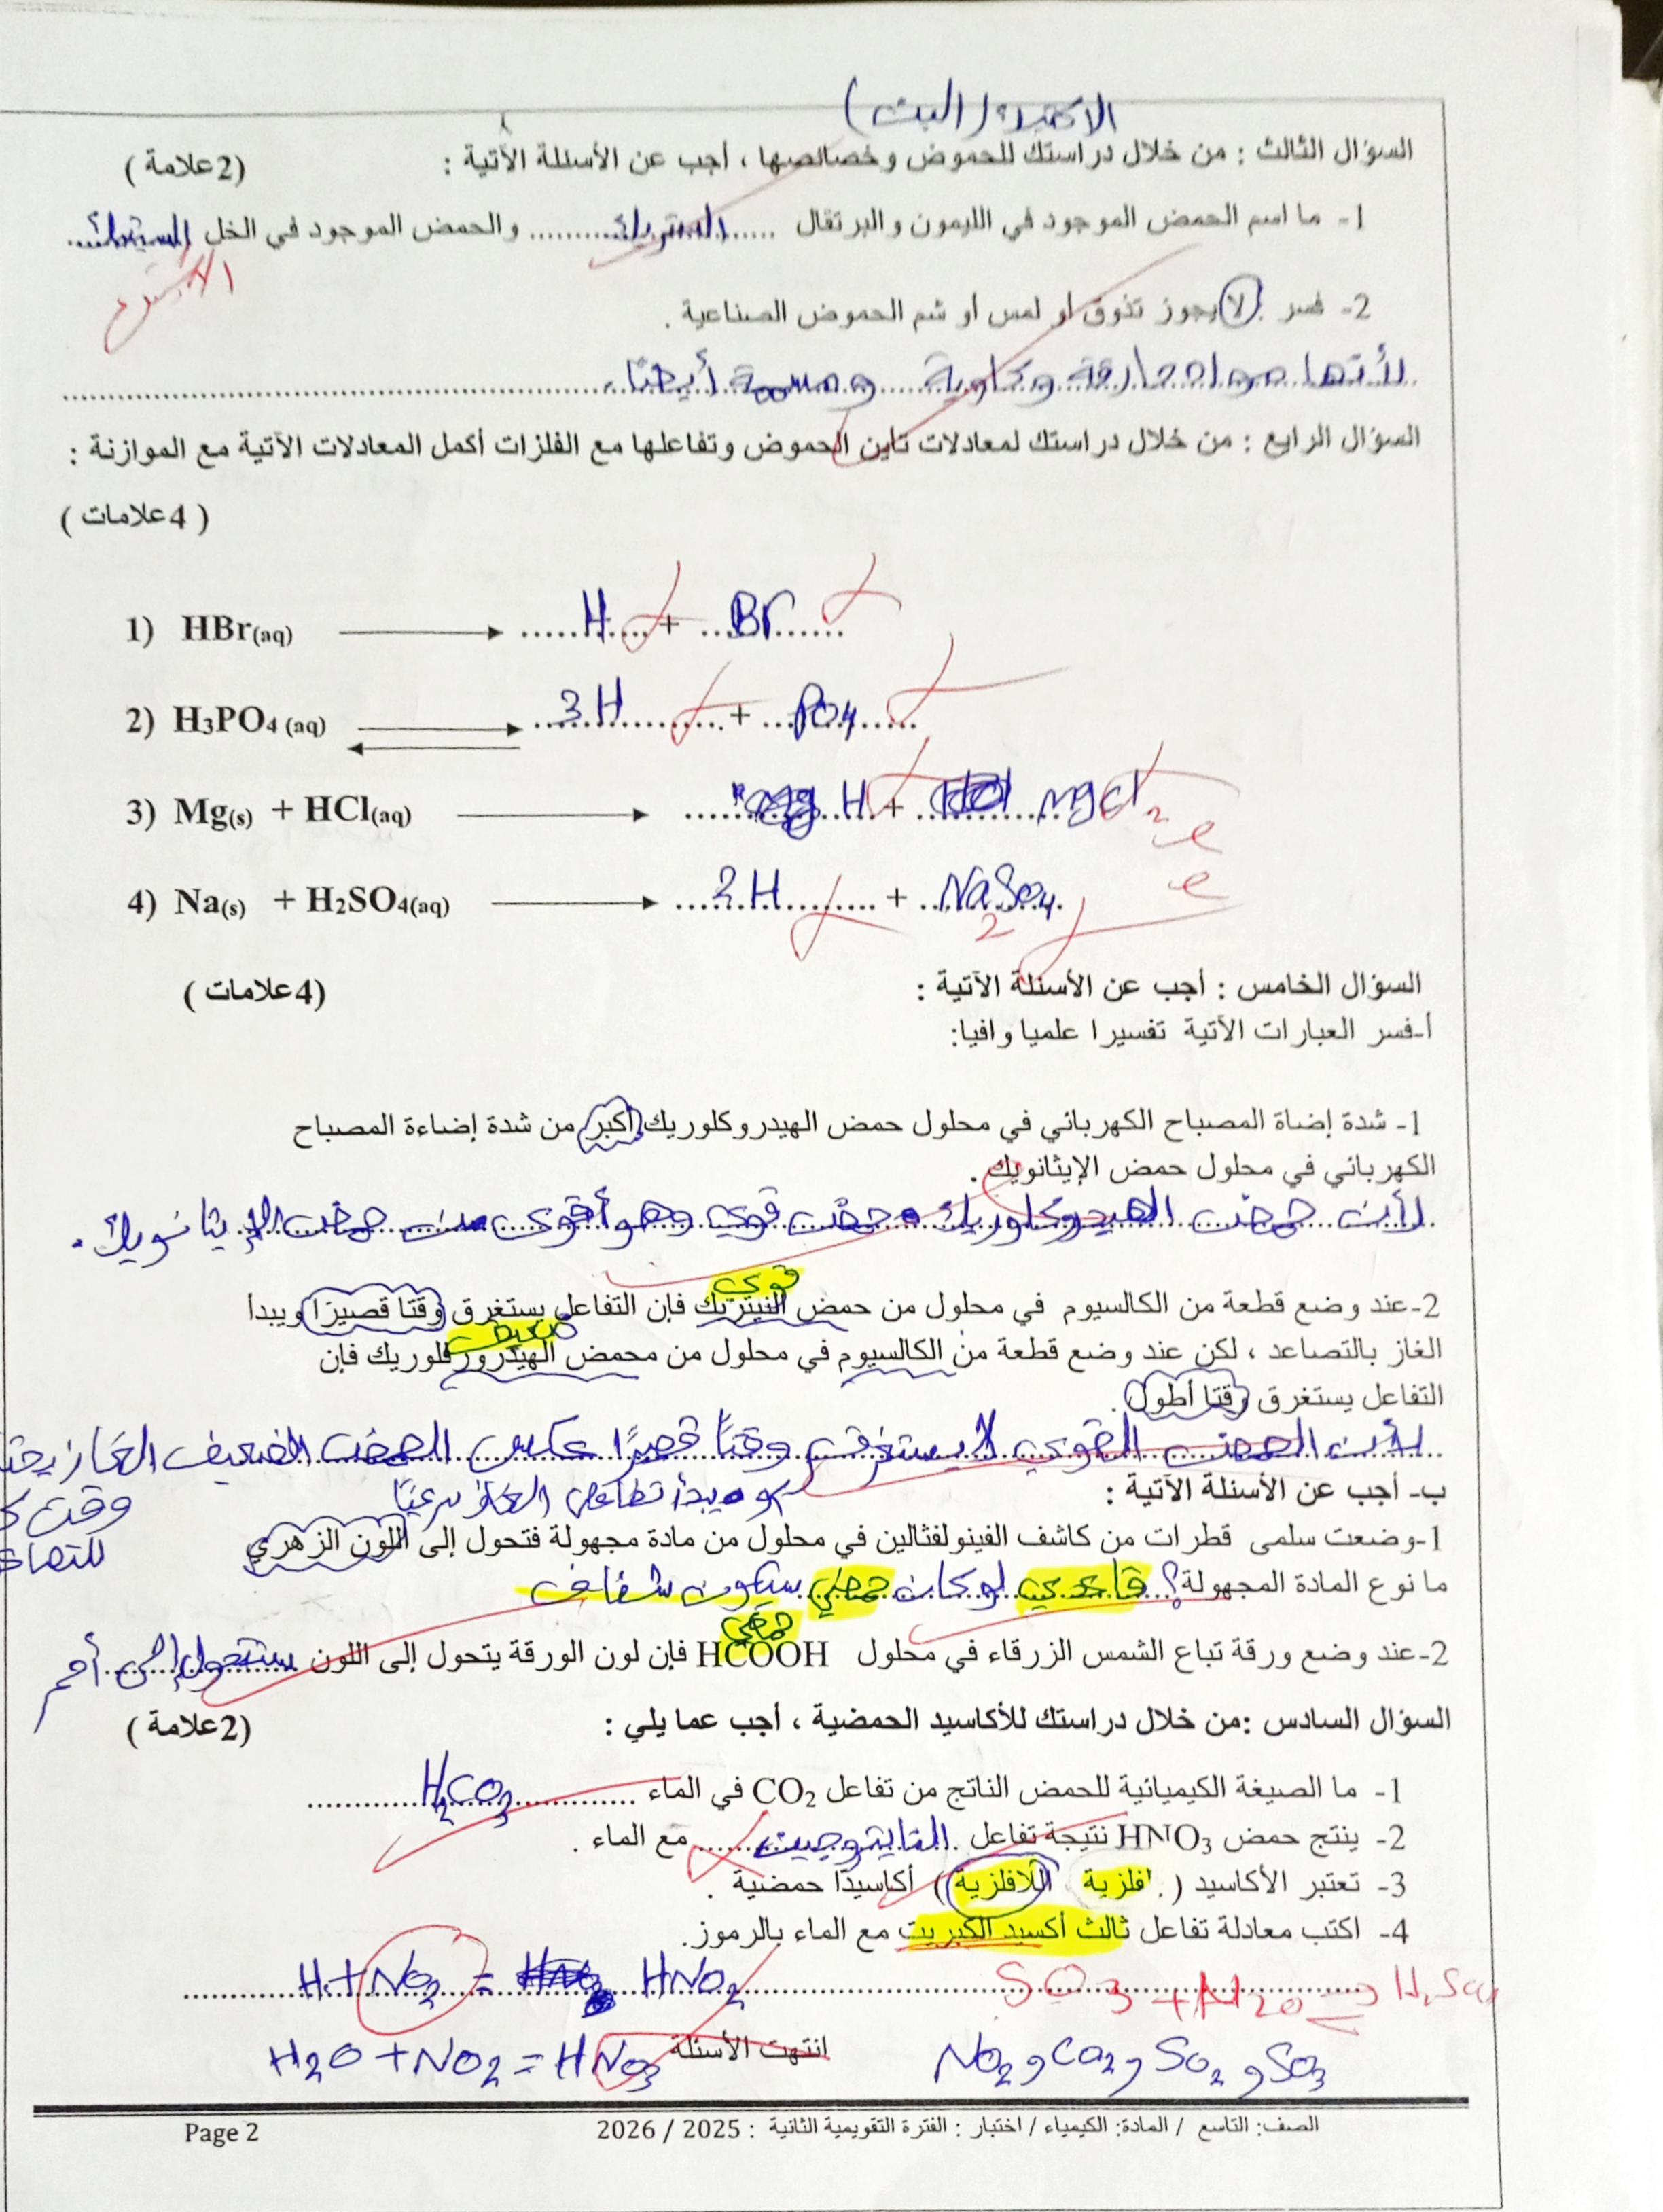 السؤال الثالث : من خلال دراستك للحموض وخصائصها ، أجب عن الأسئلة الآتية : (2علامة )
1- ما اسم الحمض الموجود في الليمون والبرتقال ..... الستريك ..... والحمض الموجود في الخل
2- فسر : لا يجوز تذوق أو لمس أو شم الحموض الصناعية .
لأنها مواد حارقة وكاوية و سامة أيضًا.
السؤال الرابع : من خلال دراستك لمعادلات تأين الحموض وتفاعلها مع الفلزات أكمل المعادلات الآتية مع الموازنة :
( 4علامات )
1) HBr(aq) → H + Br
2) H3PO4 (aq) ⇄ 3H + PO4
3) Mg(s) + HCl(aq) → H + mgcl 2
4) Na(s) + H2SO4(aq) → 2H + Na2So4
السؤال الخامس : أجب عن الأسئلة الآتية : (4علامات )
أ-فسر العبارات الآتية تفسيرا علميا وافيا:
1- شدة إضاة المصباح الكهربائي في محلول حمض الهيدروكلوريك أكبر من شدة إضاءة المصباح
الكهربائي في محلول حمض الإيثانويك .
لأن حمض الهيدروكلوريك حمض قوي وهو أقوى من حمض الإيثانويك .
قوي
2-عند وضع قطعة من الكالسيوم في محلول من حمض النيتريك فإن التفاعل يستغرق وقتا قصيرًا ويبدأ
ضعيف
الغاز بالتصاعد ، لكن عند وضع قطعة من الكالسيوم في محلول من محمض الهيدرور فلوريك فإن
التفاعل يستغرق وقتا أطول .
لأن الحمض القوي لا يستغرق وقتًا قصيرًا عكس الحمض الضعيف الغاز
ويبدأ تفاعل الغاز سريعًا
وقت
ب- أجب عن الأسئلة الآتية :
1-وضعت سلمى قطرات من كاشف الفينولفثالين في محلول من مادة مجهولة فتحول إلى اللون الزهري
ما نوع المادة المجهولة؟ قاعدي لو كان حمضي سيكون شفاف
حمضي
2-عند وضع ورقة تباع الشمس الزرقاء في محلول HCOOH فإن لون الورقة يتحول إلى اللون ستتحول إلى أحمر
السؤال السادس :من خلال دراستك للأكاسيد الحمضية ، أجب عما يلي : (2علامة )
1- ما الصيغة الكيميائية للحمض الناتج من تفاعل CO2 في الماء ..... H2CO3 .....
2- ينتج حمض HNO3 نتيجة تفاعل ..... مع الماء .
3- تعتبر الأكاسيد ( الفلزية اللافلزية ) أكاسيدًا حمضية .
4- اكتب معادلة تفاعل ثالث أكسيد الكبريت مع الماء بالرموز.
H + NO2 = HNO2 SO3 + H2O → H2SO4
انتهت الأسئلة
H2O + NO2 = HNO3 NO2 و CO2 و SO2 و SO3
الصف: التاسع / المادة: الكيمياء / اختبار : الفترة التقويمية الثانية : 2025 / 2026 Page 2